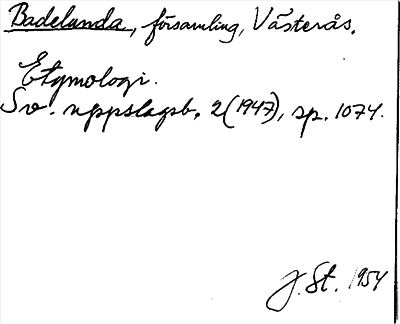 Badelunda, församling, Västerås.
Etymologi.
Sv. uppslagsb. 2 (1947), sp. 1074.
J. St. 1954